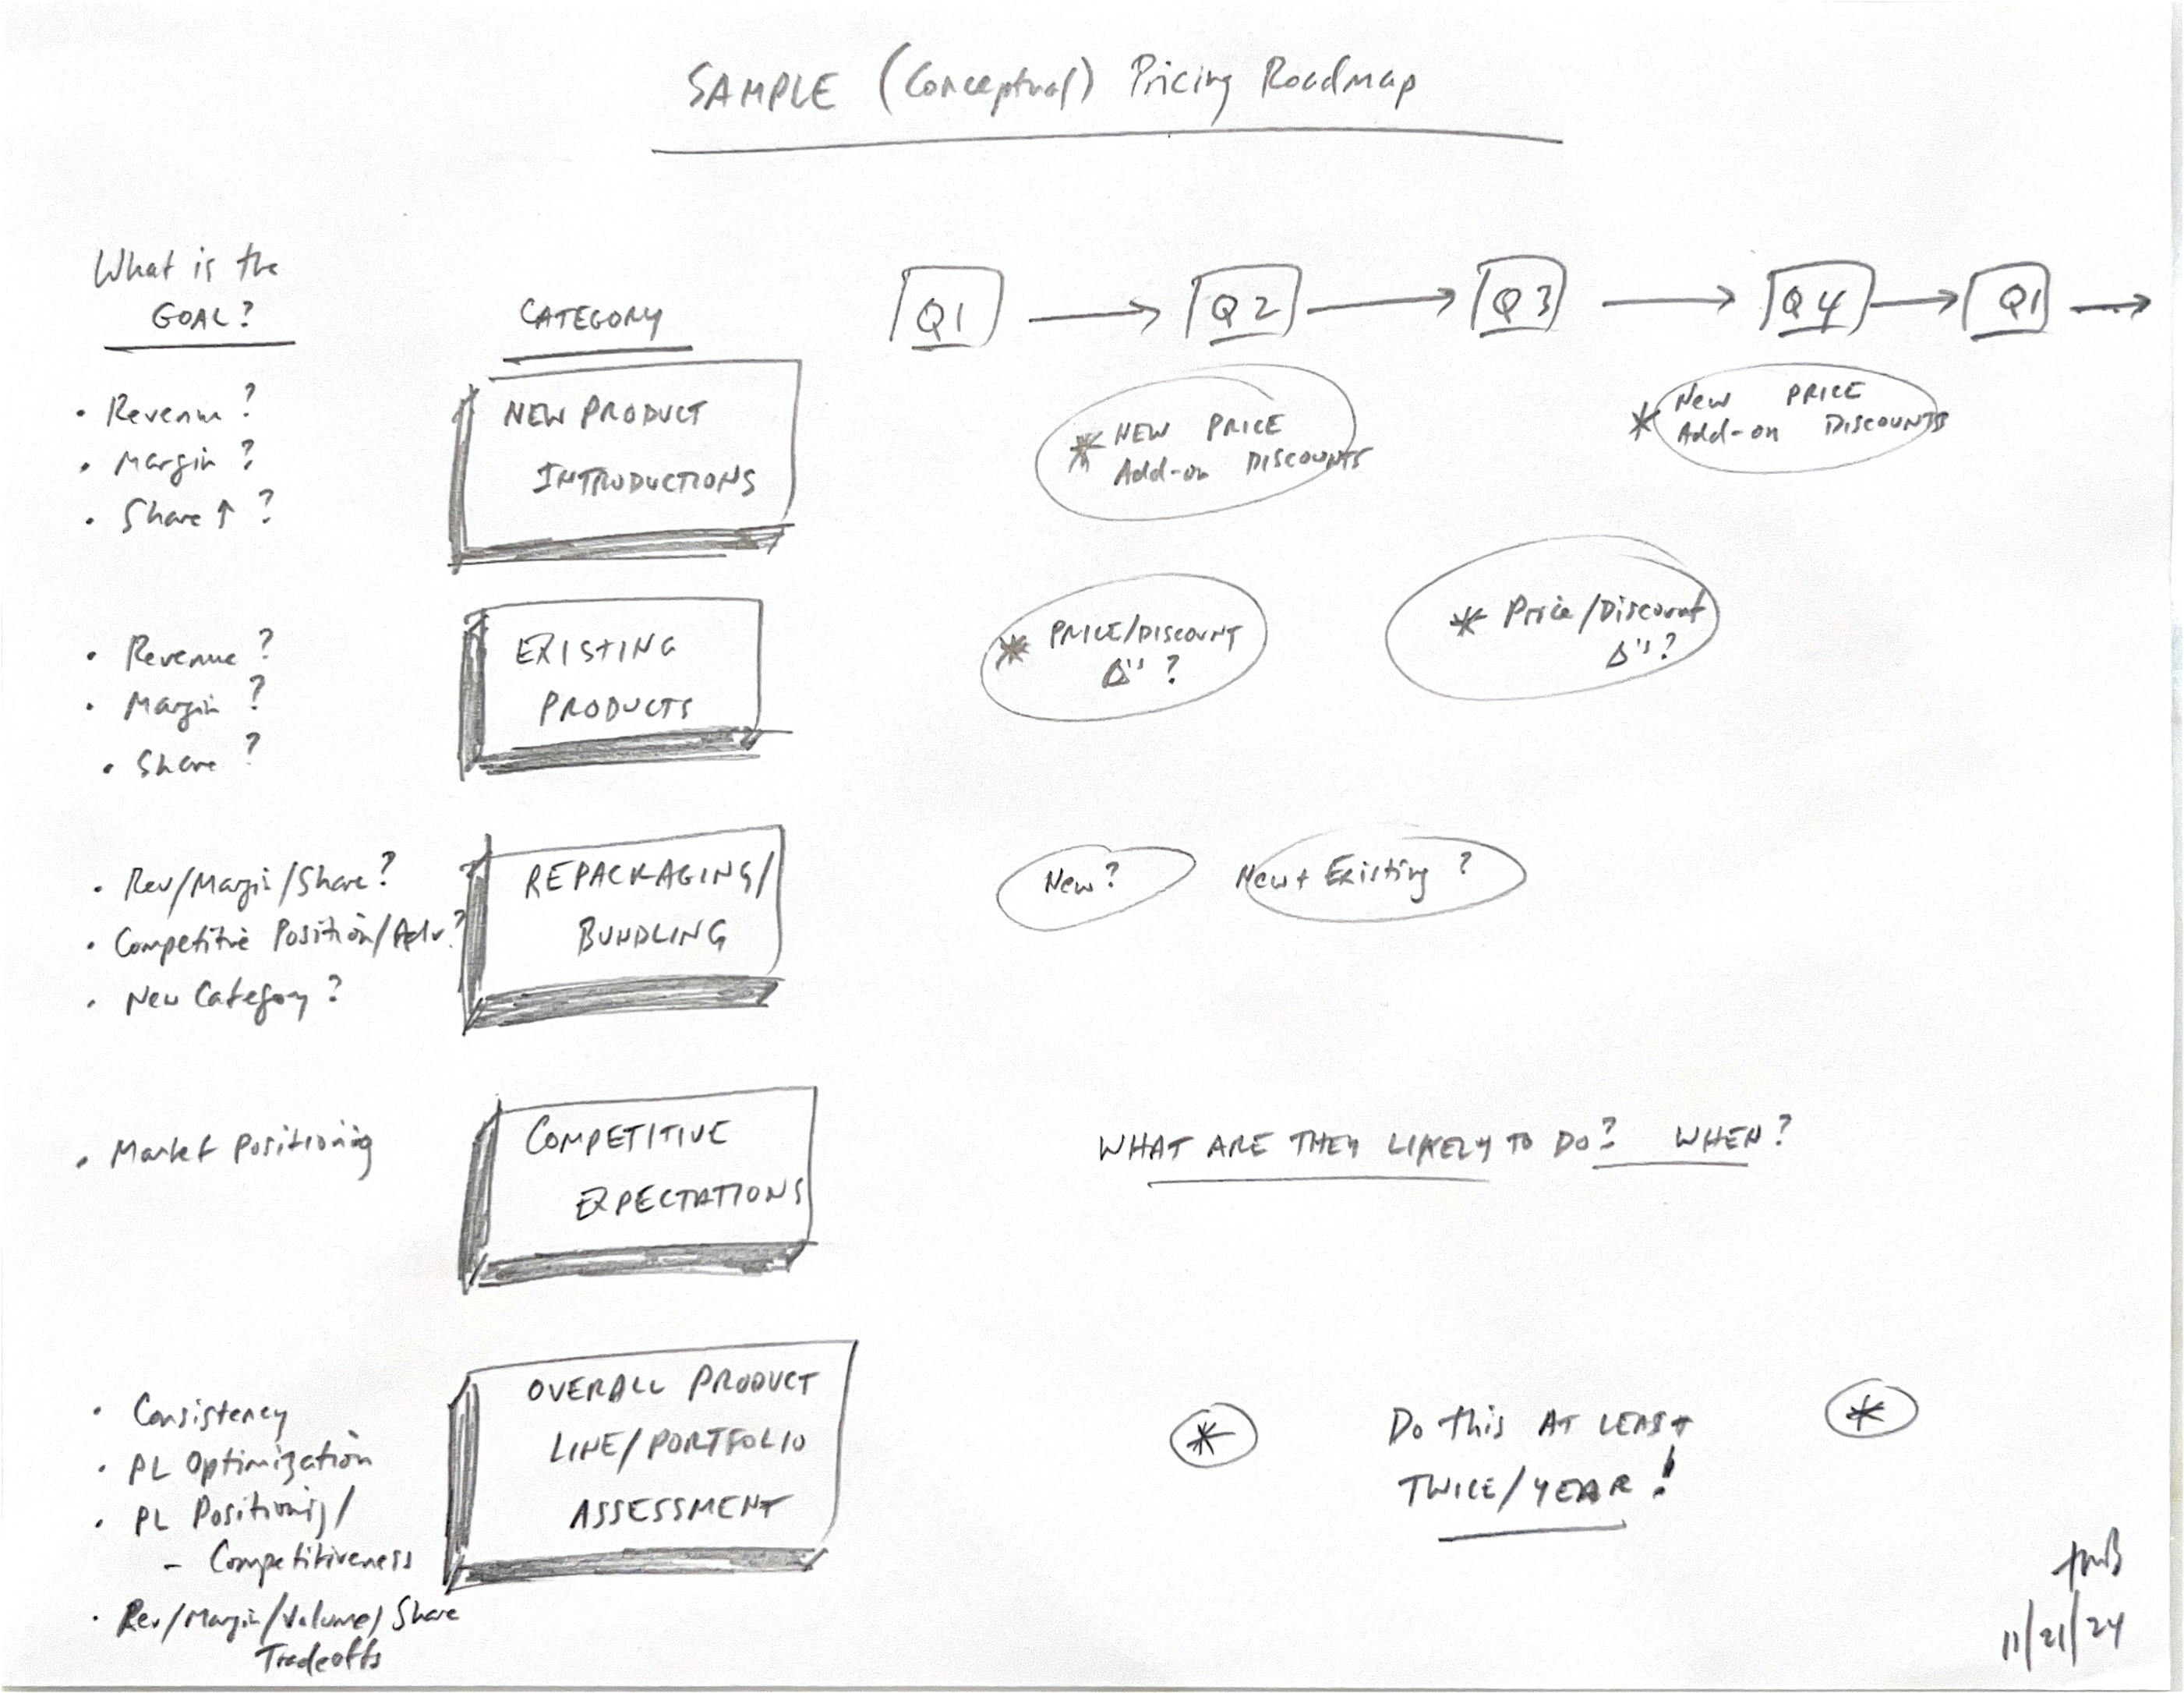 SAMPLE (Conceptual) Pricing Roadmap
What is the
GOAL?
CATEGORY
Q1
Q2
Q3
Q4
Q1
• Revenue?
• Margin?
• Share ↑ ?
NEW PRODUCT
INTRODUCTIONS
* NEW PRICE
Add-on DISCOUNTS
* New PRICE
Add-on DISCOUNTS
• Revenue?
• Margin?
• Share?
EXISTING
PRODUCTS
* PRICE/DISCOUNT
Δ's ?
* Price/Discount
Δ's ?
• Rev/Margin/Share?
• Competitive Position/Adv.?
• New Category?
REPACKAGING/
BUNDLING
New?
New + Existing ?
• Market Positioning
COMPETITIVE
EXPECTATIONS
WHAT ARE THEY LIKELY TO DO? WHEN?
• Consistency
• PL Optimization
• PL Positioning/
- Competitiveness
• Rev/Margin/Volume/Share
Tradeoffs
OVERALL PRODUCT
LINE/PORTFOLIO
ASSESSMENT
*
Do this AT LEAST
TWICE/YEAR!
*
tmB
11/21/24